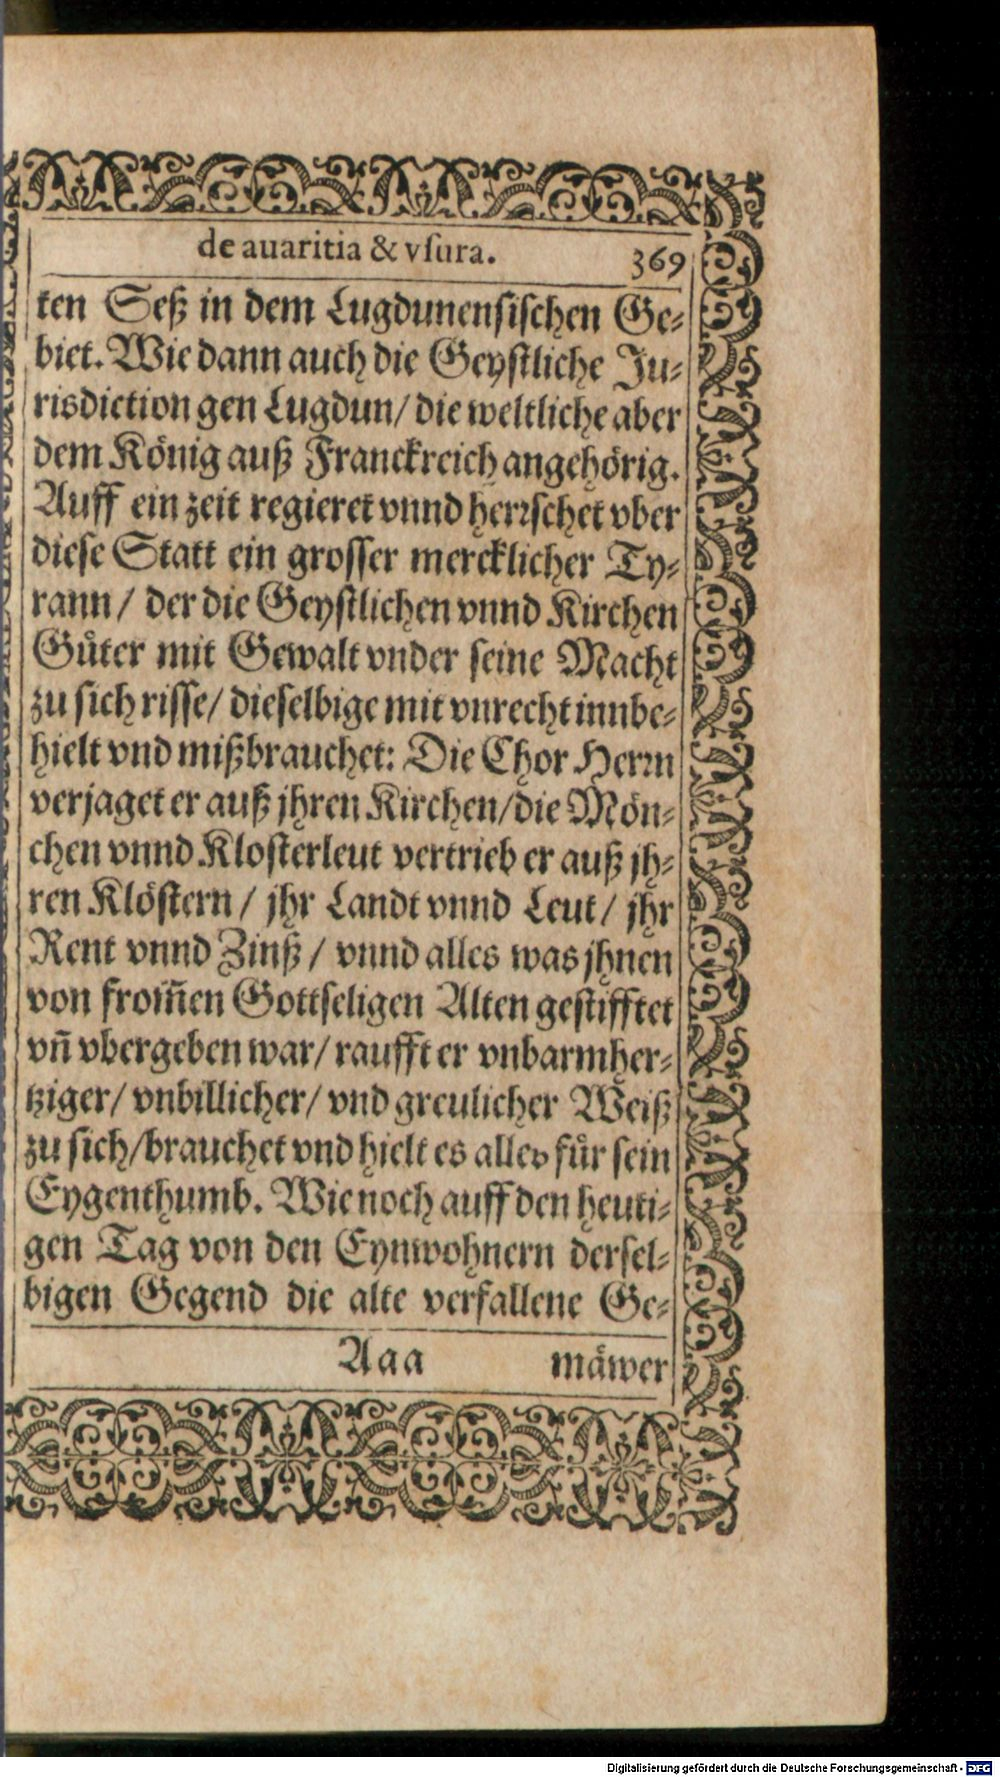 de avaritia & vſura. 369
ten Seß in dem Lugdunensischen Ge⸗
biet. Wie dann auch die Geystliche Ju⸗
risdiction gen Lugdun/ die weltliche aber
dem König auß Franckreich angehörig.
Auff ein zeit regieret vnnd herrschet vber
diese Statt ein grosser mercklicher Ty⸗
rann / der die Geystlichen vnnd Kirchen
Guͤter mit Gewalt vnder seine Macht
zu sich risse/ dieselbige mit vnrecht innbe⸗
hielt vnd mißbrauchet: Die Chor Herrn
verjaget er auß jhren Kirchen/die Mön⸗
chen vnnd Klosterleut vertrieb er auß jh⸗
ren Klöstern / jhr Landt vnnd Leut/ jhr
Rent vnnd Zinß / vnnd alles was jhnen
von from̃en Gottseligen Alten gestifftet
vñ vbergeben war/ raufft er vnbarmher⸗
tziger/ vnbillicher/ vnd greulicher Weiß
zu sich/brauchet vnd hielt es alles fuͤr sein
Eygenthumb. Wie noch auff den heuti⸗
gen Tag von den Eynwohnern dersel⸗
bigen Gegend die alte verfallene Ge⸗
Aaa mäwer
Digitalisierung gefördert durch die Deutsche Forschungsgemeinschaft - DFG